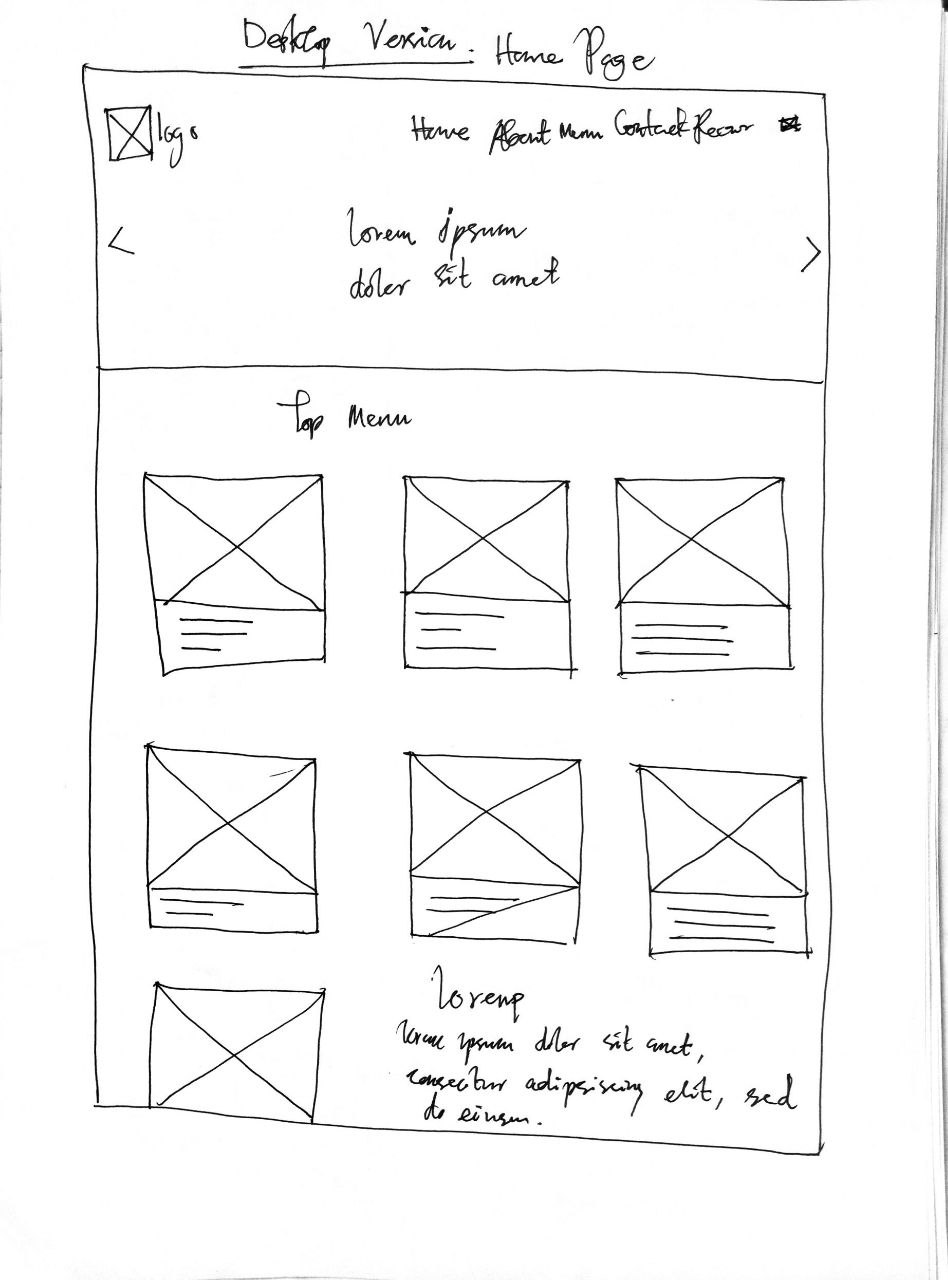 Desktop Version. Home Page
logo
Home About Menu Contact
lorem ipsum
doler sit amet
Top Menu
lorem
lorem ipsum doler sit amet,
consecitur adipsiscing elit, sed
do